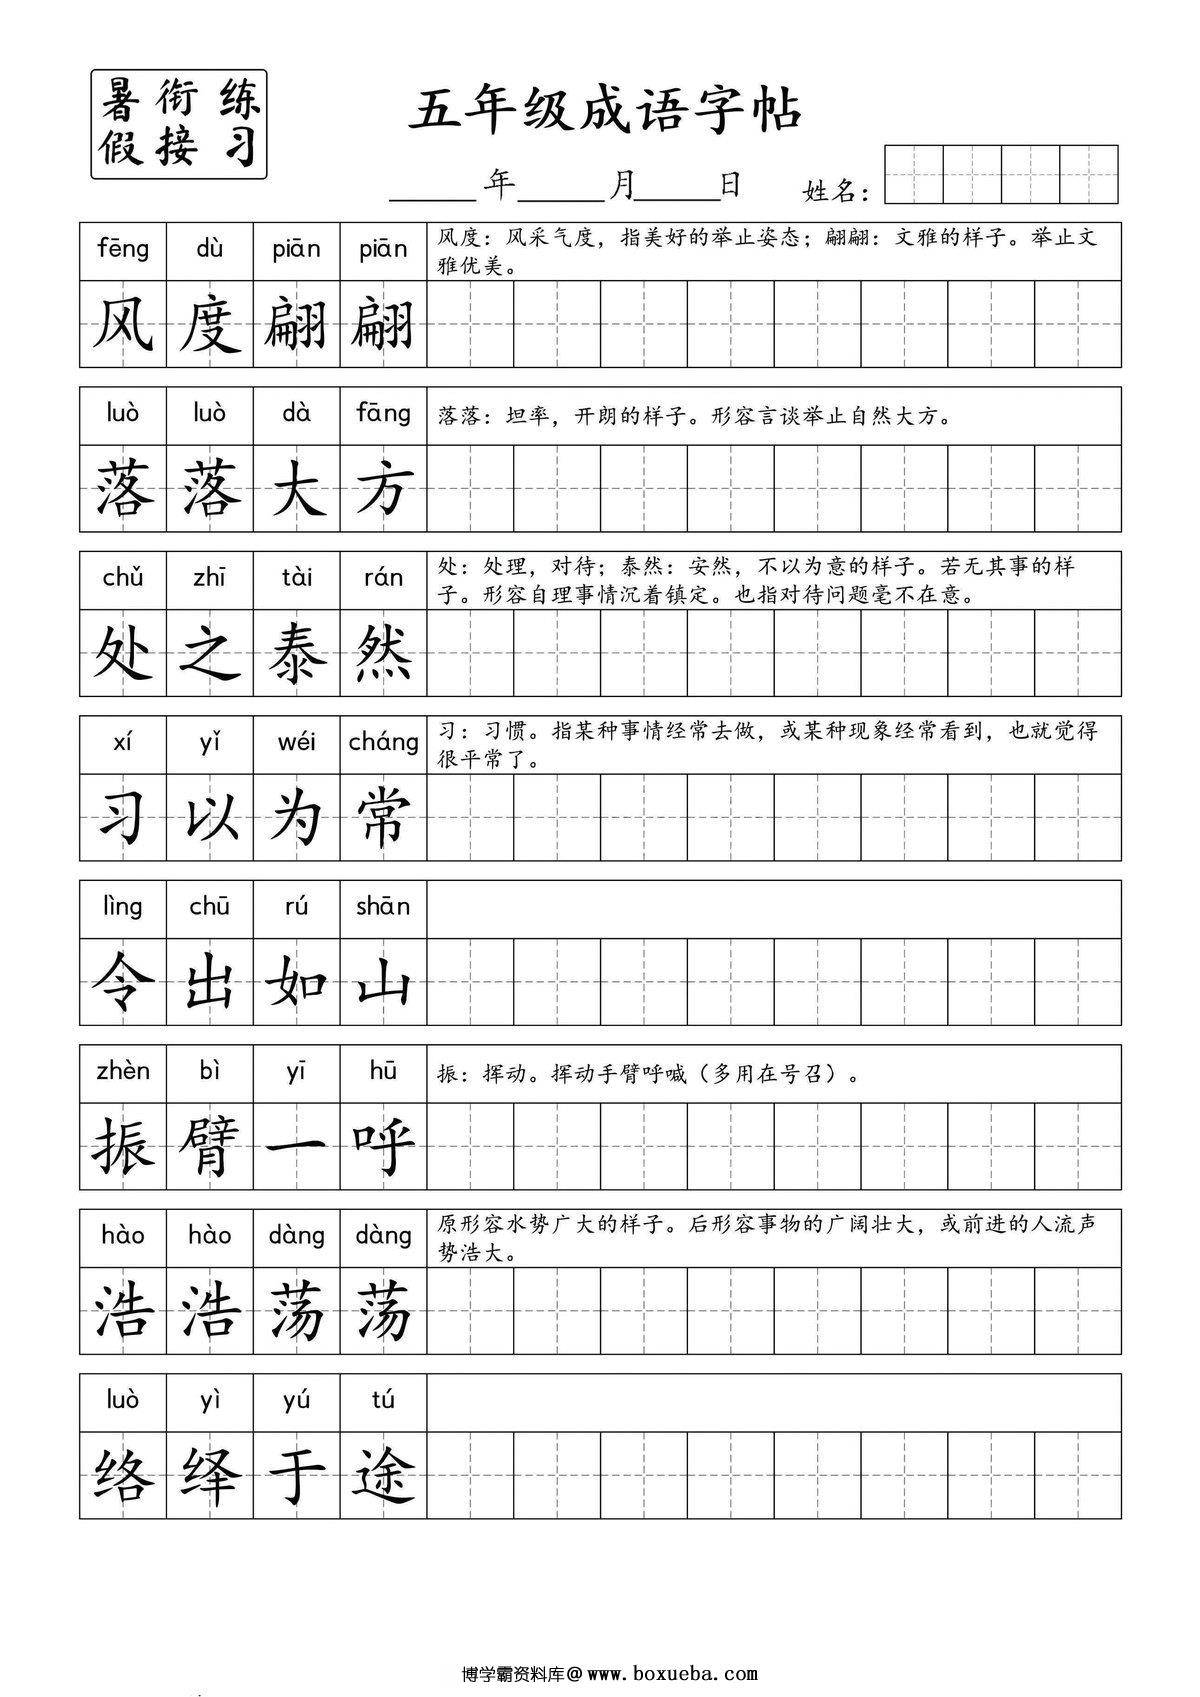 暑衔练
假接习
五年级成语字帖
年 月 日 姓名：
fēng dù piān piān
风度：风采气度，指美好的举止姿态；翩翩：文雅的样子。举止文
雅优美。
风度翩翩
luò luò dà fāng
落落：坦率，开朗的样子。形容言谈举止自然大方。
落落大方
chǔ zhī tài rán
处：处理，对待；泰然：安然，不以为意的样子。若无其事的样
子。形容自理事情沉着镇定。也指对待问题毫不在意。
处之泰然
xí yǐ wéi cháng
习：习惯。指某种事情经常去做，或某种现象经常看到，也就觉得
很平常了。
习以为常
lìng chū rú shān
令出如山
zhèn bì yī hū
振：挥动。挥动手臂呼喊（多用在号召）。
振臂一呼
hào hào dàng dàng
原形容水势广大的样子。后形容事物的广阔壮大，或前进的人流声
势浩大。
浩浩荡荡
luò yì yú tú
络绎于途
博学霸资料库@www.boxueba.com